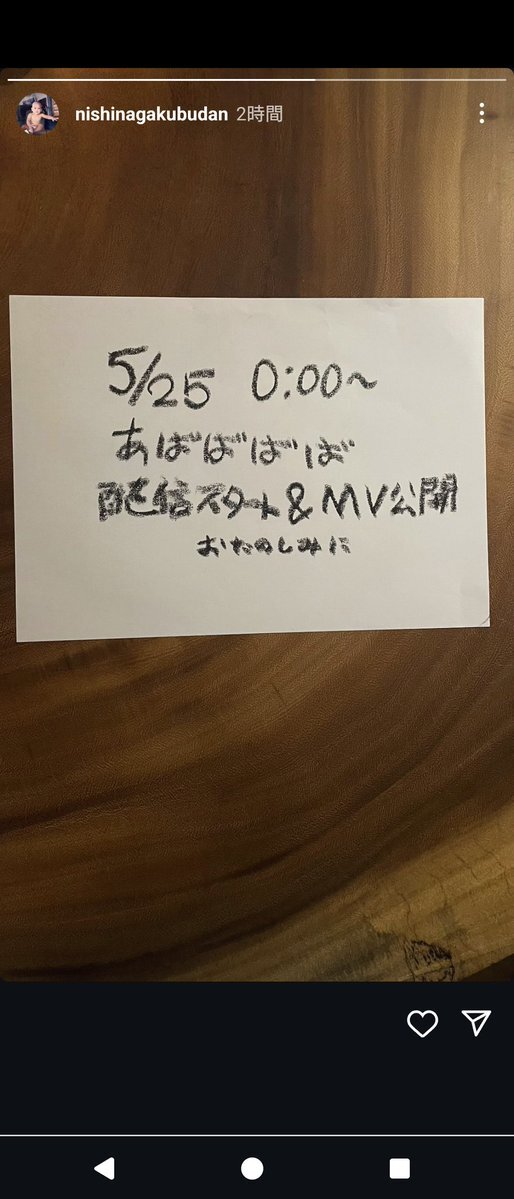 nishinagakubudan 2時間
5/25 0:00〜
あばばばば
配信スタート&MV公開
おたのしみに